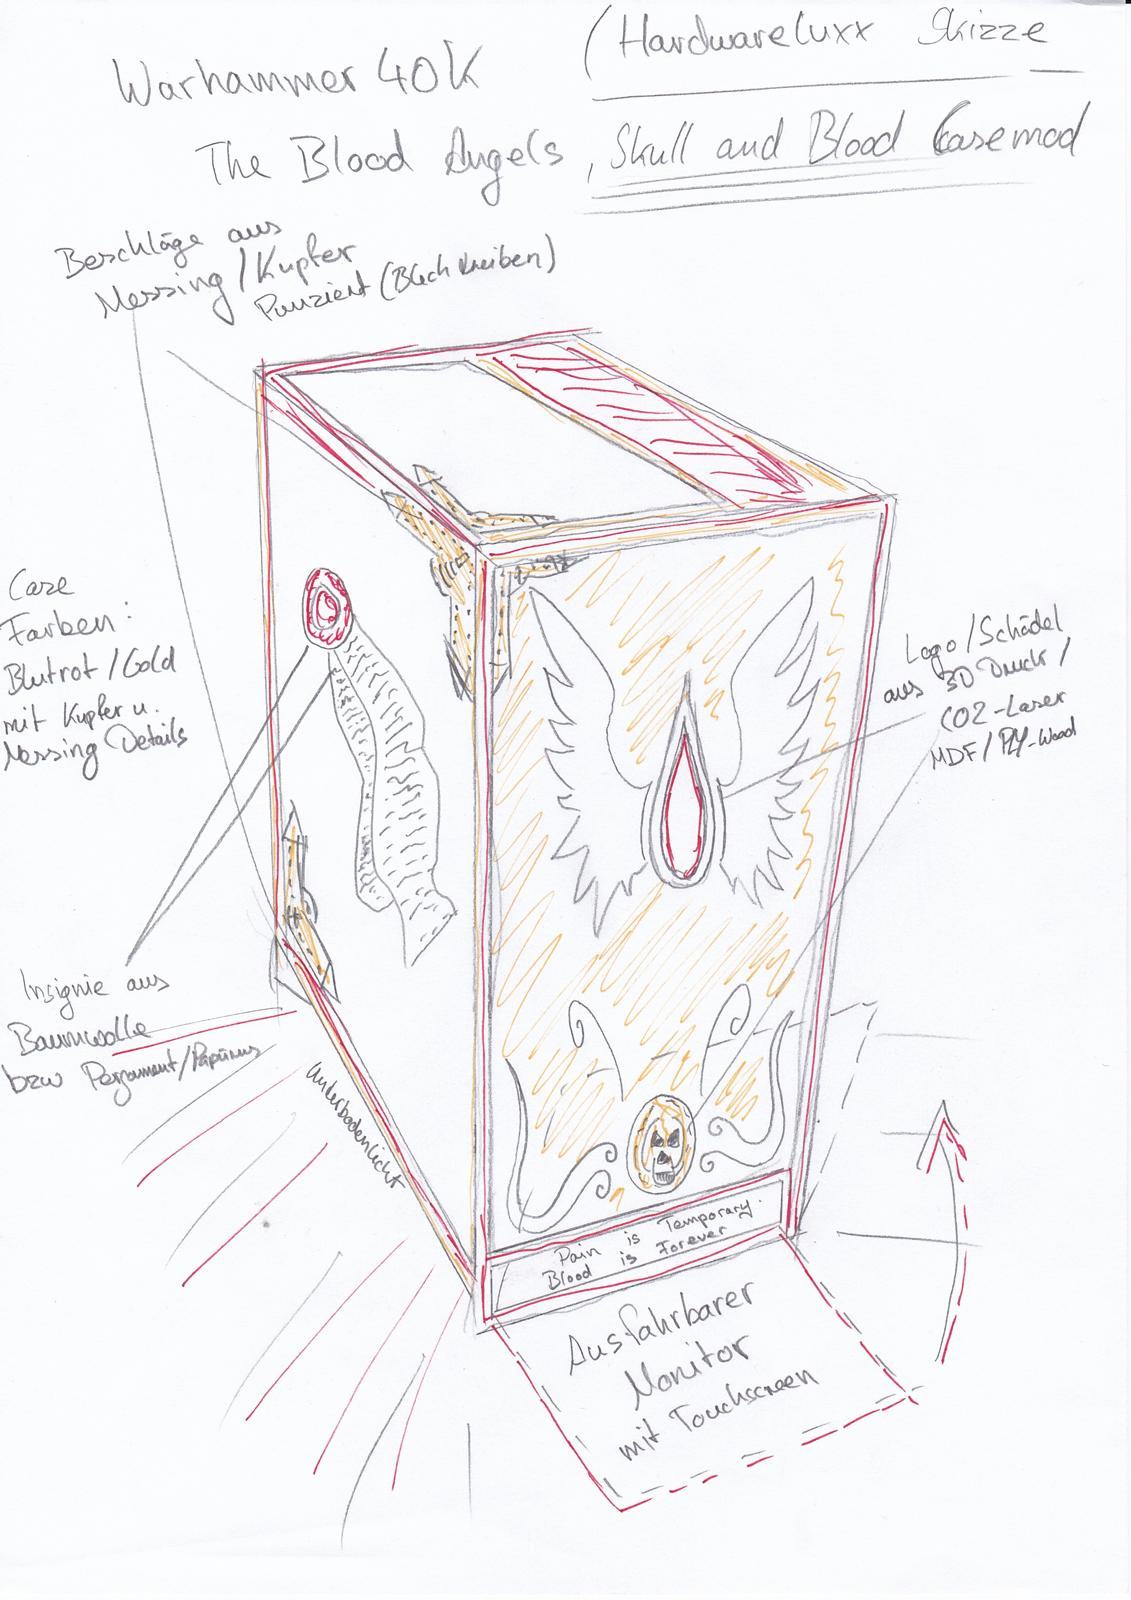 (Hardwareluxx Skizze
Warhammer 40K
The Blood Angels, Skull and Blood Casemod
Beschläge aus
Messing/Kupfer
Punziert (Blech treiben)
Case
Farben:
Blutrot/Gold
mit Kupfer u.
Messing Details
Logo/Schädel
aus 3D Druck/
CO2-Laser
MDF/PLY-Wood
Insignie aus
Baumwolle
bzw Pergament/Papürus
Unterbodenlicht
Pain is Temporary.
Blood is Forever
Ausfahrbarer
Monitor
mit Touchscreen